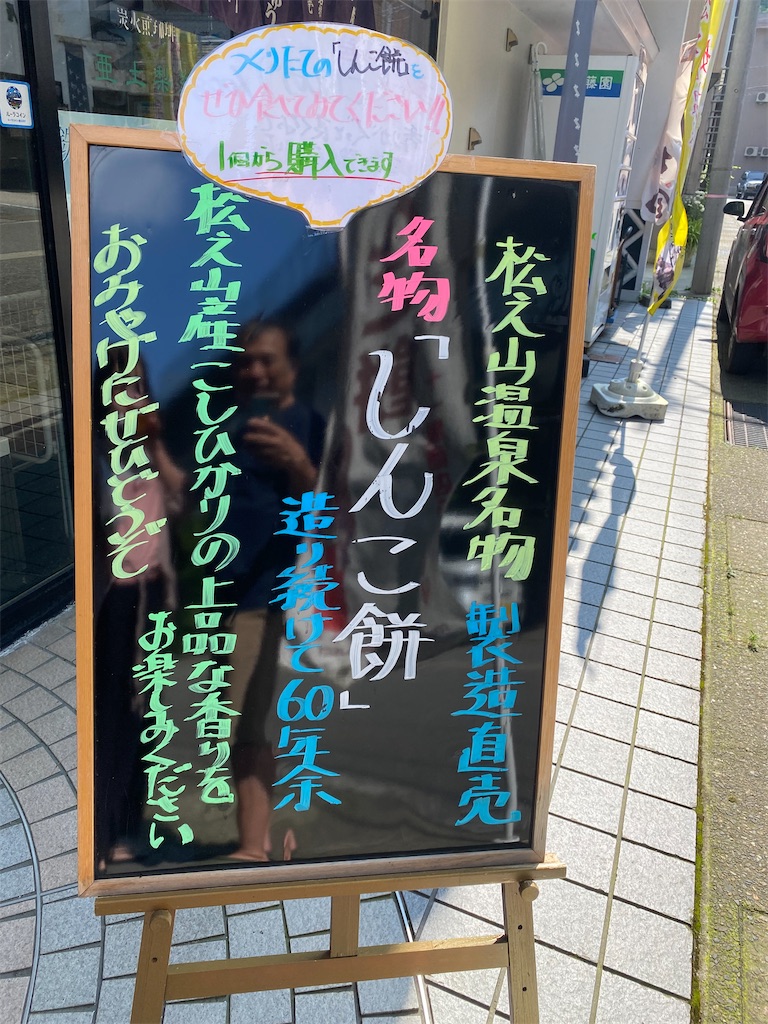 メリたての「しんこ餅」を
ぜひ食べてみてください!!
1個から購入できます
松之山温泉名物
製造直売
名物
「しんこ餅」
造り続けて60年余
松之山産こしひかりの上品な香りを
お楽しみください
おみやげにぜひどうぞ
藤園